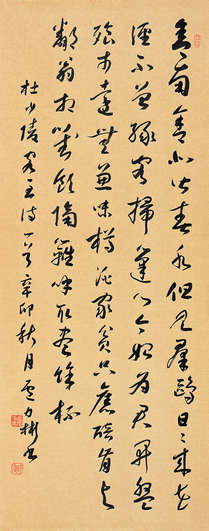 舍南舍北皆春水但見群鷗日々來花
徑不曾緣客掃蓬門今始為君開盤
飧市遠無兼味樽酒家貧只舊醅肯與
鄰翁相對飲隔籬呼取盡餘杯
杜少陵客至詩一首辛卯秋月力書